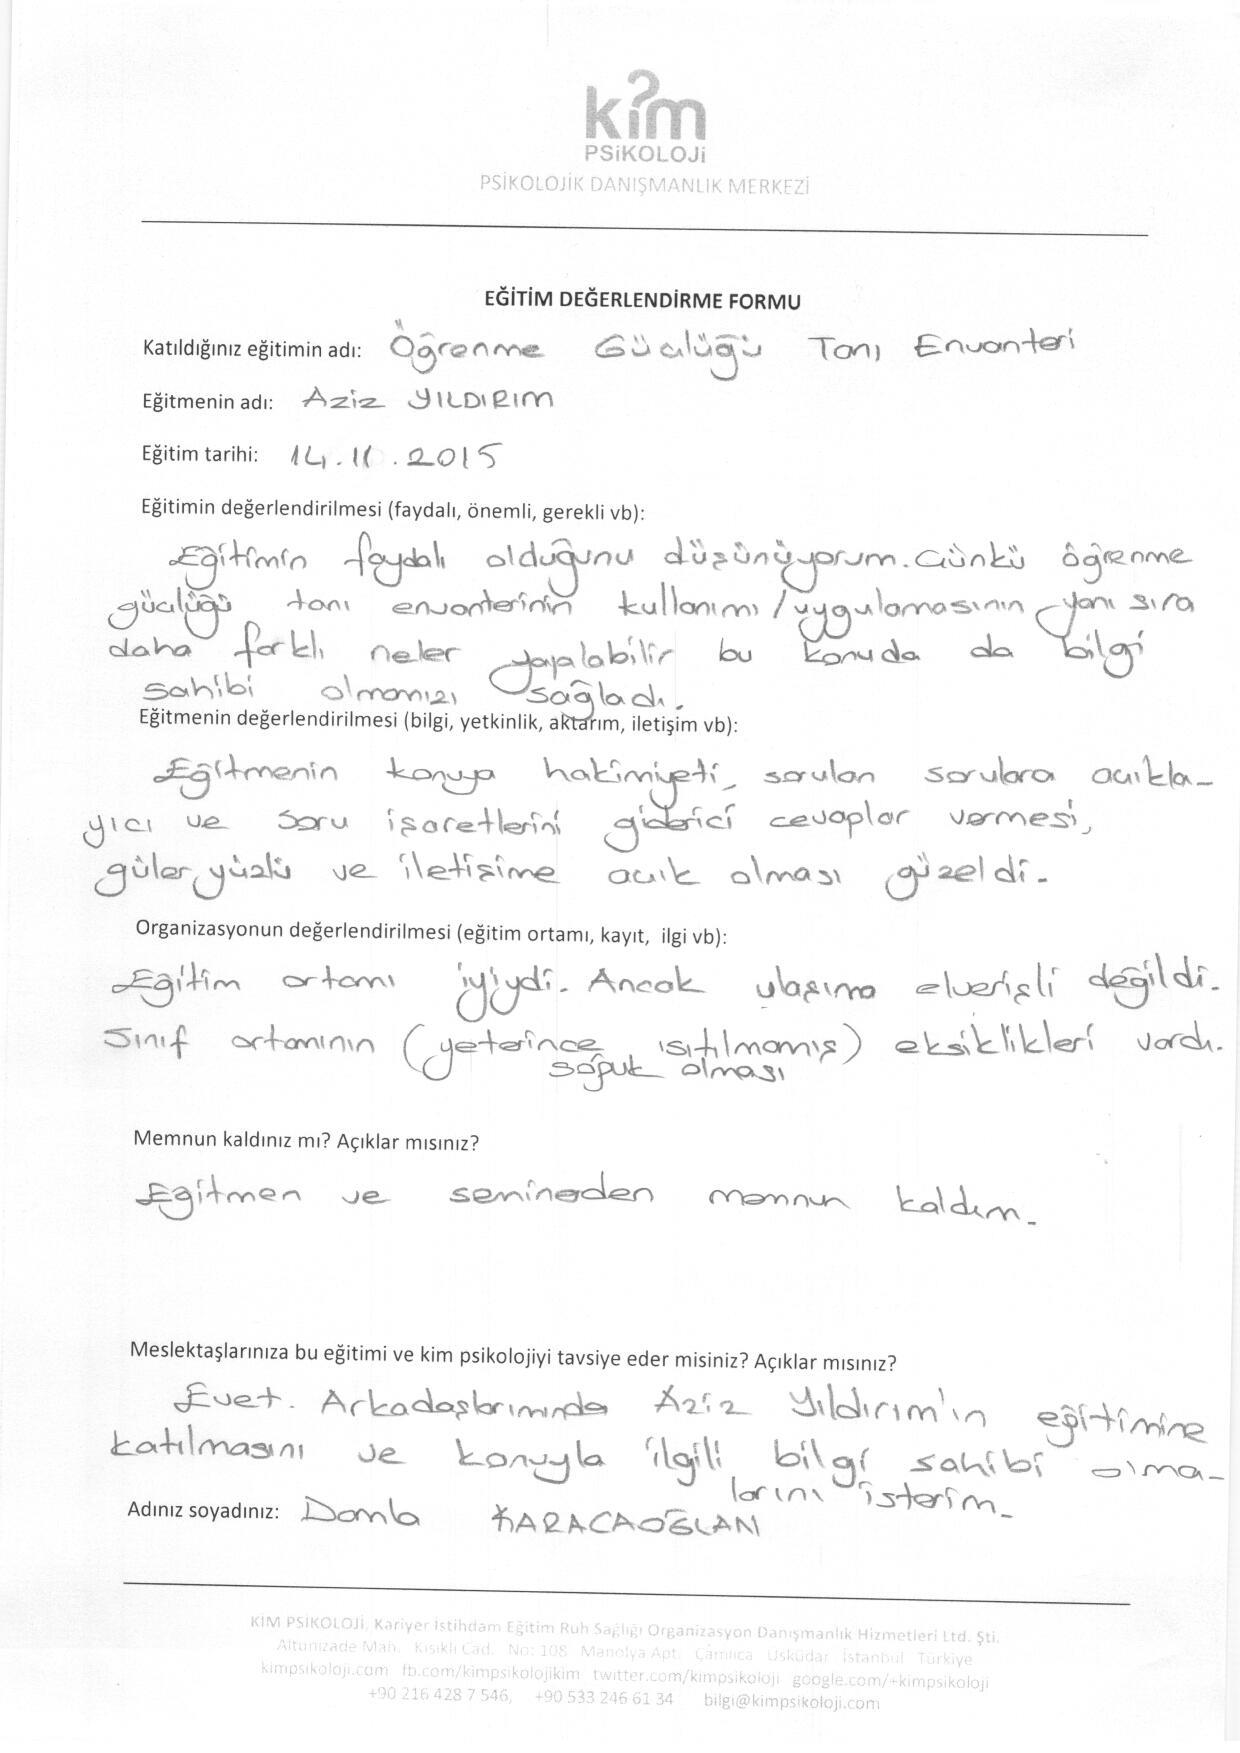 kim
PSiKOLOJi
PSİKOLOJİK DANIŞMANLIK MERKEZİ
EĞİTİM DEĞERLENDİRME FORMU
Katıldığınız eğitimin adı: Öğrenme Güçlüğü Tanı Envanteri
Eğitmenin adı: Aziz YILDIRIM
Eğitim tarihi: 14.11.2015
Eğitimin değerlendirilmesi (faydalı, önemli, gerekli vb):
Eğitimin faydalı olduğunu düşünüyorum. Çünkü öğrenme
güçlüğü tanı envanterinin kullanımı/uygulamasının yanı sıra
daha farklı neler yapılabilir bu konuda da bilgi
sahibi olmamızı sağladı.
Eğitmenin değerlendirilmesi (bilgi, yetkinlik, aktarım, iletişim vb):
Eğitmenin konuya hakimiyeti, sorulan sorulara açıkla-
yıcı ve soru işaretlerini giderici cevaplar vermesi,
güler yüzlü ve iletişime açık olması güzeldi.
Organizasyonun değerlendirilmesi (eğitim ortamı, kayıt, ilgi vb):
Eğitim ortamı iyiydi. Ancak ulaşıma elverişli değildi.
Sınıf ortamının (yeterince ısıtılmamış) eksiklikleri vardı.
soğuk olması
Memnun kaldınız mı? Açıklar mısınız?
Eğitmen ve seminerden memnun kaldım.
Meslektaşlarınıza bu eğitimi ve kim psikolojiyi tavsiye eder misiniz? Açıklar mısınız?
Evet. Arkadaşlarımında Aziz Yıldırım'ın eğitimine
katılmasını ve konuyla ilgili bilgi sahibi olma-
larını isterim.
Adınız soyadınız: Damla KARACAOĞLAN
KİM PSİKOLOJİ, Kariyer İstihdam Eğitim Ruh Sağlığı Organizasyon Danışmanlık Hizmetleri Ltd. Şti.
Altunizade Mah. Kısıklı Cad. No: 108 Manolya Apt. Çamlıca Üsküdar İstanbul Türkiye
kimpsikoloji.com fb.com/kimpsikolojikim twitter.com/kimpsikoloji google.com/+kimpsikoloji
+90 216 428 7 546, +90 533 246 61 34 bilgi@kimpsikoloji.com